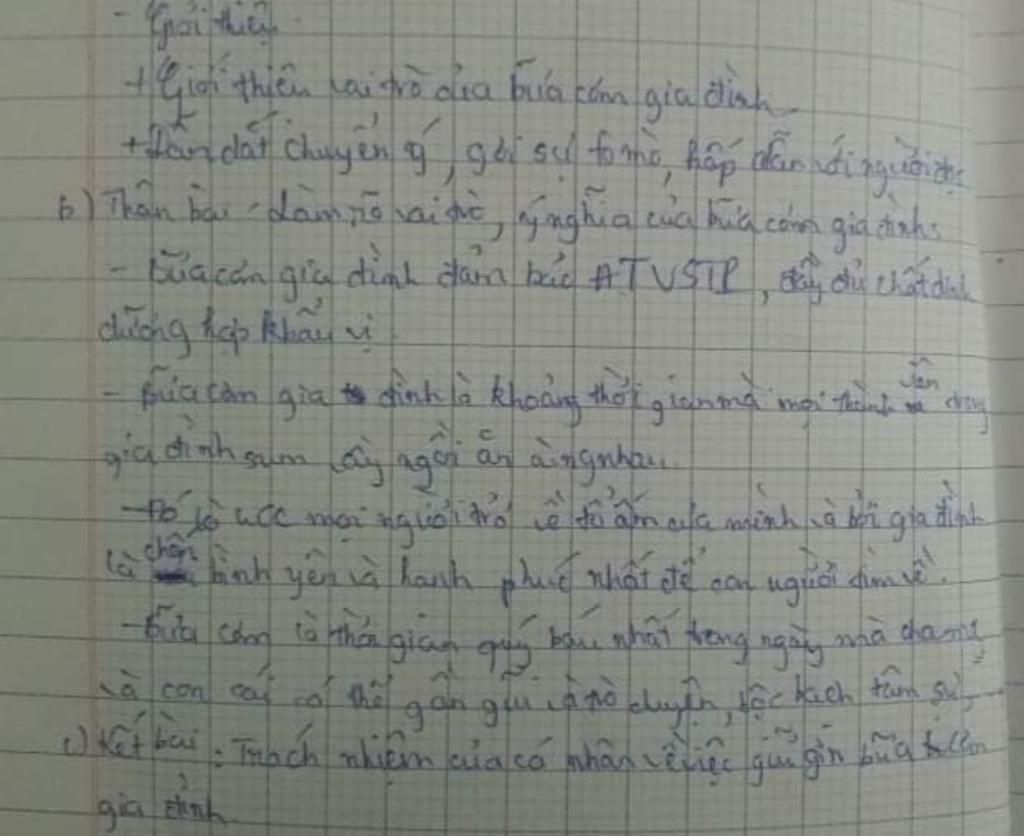 - Giới thiệu
+ Giới thiệu vai trò của bữa cơm gia đình
+ Dẫn dắt chuyển ý, gợi sự tò mò, hấp dẫn với người đọc
b) Thân bài: Làm rõ vai trò, ý nghĩa của bữa cơm gia đình:
- Bữa cơm gia đình đảm bảo ATVSTP, đầy đủ chất dinh
dưỡng hợp khẩu vị
- Bữa cơm gia đình là khoảng thời gian mà mọi thành viên trong
gia đình sum vầy ngồi ăn cùng nhau.
- Đó là lúc mọi người trở về tổ ấm của mình và bởi gia đình
là chốn bình yên và hạnh phúc nhất để con người tìm về.
- Bữa cơm là thời gian quý báu nhất trong ngày mà cha mẹ
và con cái có thể gần gũi và trò chuyện, bộc bạch tâm sự,
c) Kết bài: Trách nhiệm của cá nhân về việc giữ gìn bữa cơm
gia đình